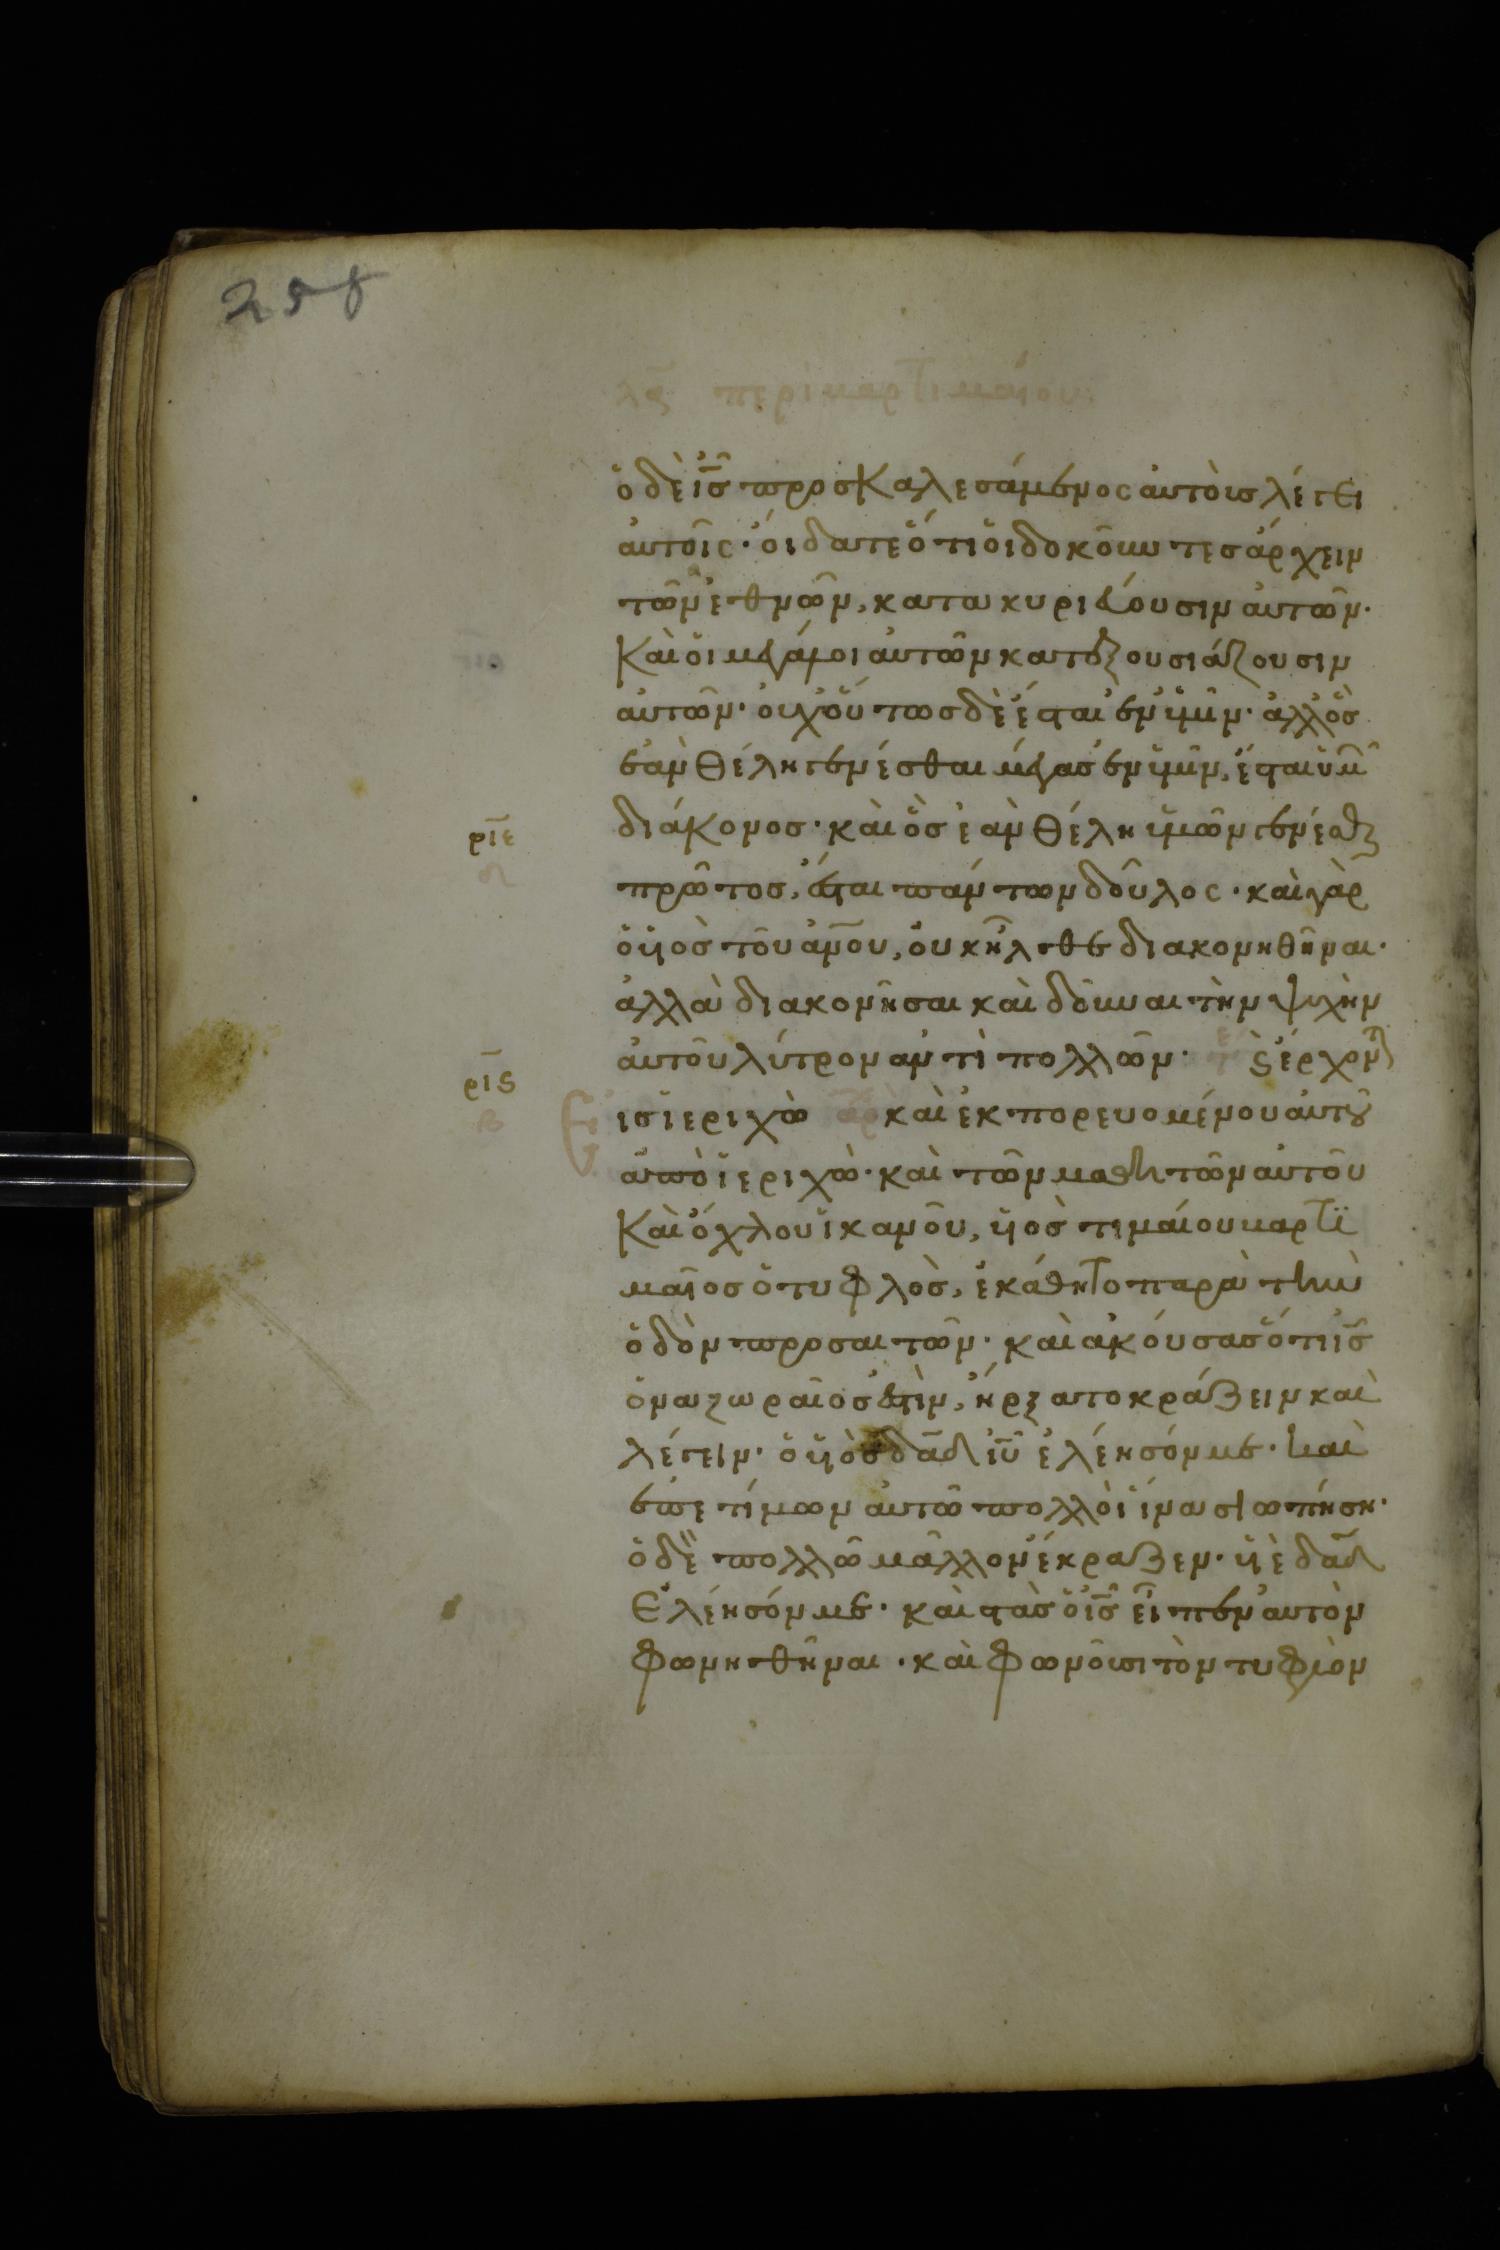 258
λα περὶ βαρτιμαίου
ὁ δὲ ις προσκαλεσάμενος αὐτοὺσ λέγει
αὐτοῖς· οἴδατε ὅτι ὁι δοκοῦντεσ ἄρχειν
τῶν ἐθνῶν, κατακυριέυουσιν αὐτῶν·
καὶ ὁι μεγάλοι αὐτῶν κατεξουσιάζουσιν
αὐτῶν· οὐχ ὅυτωσ δὲ ἔσται ἐν ὑμῖν· ἀλλ ὃσ
ἐὰν θέλη γενέσθαι μέγασ ἐν ὑμῖν, ἔσται ὑμῖ
διάκονοσ· καὶ ὃσ ἐὰν θέλη ὑμῶν γενέσθαι
πρῶτοσ, ἔσται πάντων δοῦλος· καὶ γὰρ
ὁ ὑιὸσ τοῦ ανου, ὀυκ ἦλθε διακονηθῆναι·
ἀλλὰ διακονῆσαι καὶ δοῦναι τὴν ψυχὴν
αὐτοῦ λύτρον ἀντὶ πολλῶν· ϛ ἔρχοντ
ισ ἱεριχὼ αρ καὶ ἐκπορευομένου αὐτοῦ
ἀπὸ ἱεριχὼ· καὶ τῶν μαθητῶν αὐτοῦ
καὶ ὄχλου ἱκανοῦ, ὑιοσ τιμαίου βαρτι
μαῖοσ ὁ τυφλὸσ, ἐκάθητο παρὰ τὴν
ὁδὸν προσαιτῶν· καὶ ἀκούσασ ὅτι ις
ὁ ναζωραῖοσ ἐστὶν, ἤρξατο κράζειν καὶ
λέγειν· ὁ ὑιὸσ δαδ ιυ ἐλέησόν με· καὶ
ἐπετίμων αὐτῶ πολλοὶ ἵνα σιωπήση·
ὁ δὲ πολλῶ μᾶλλον ἔκραζεν· ὑιὲ δαδ
ἐλέησόν με· καὶ στὰσ ὁ ις εἶπεν αὐτὸν
φωνηθῆναι· καὶ φωνοῦσι τὸν τυφλὸν
ριε
δ
ριϛ
β